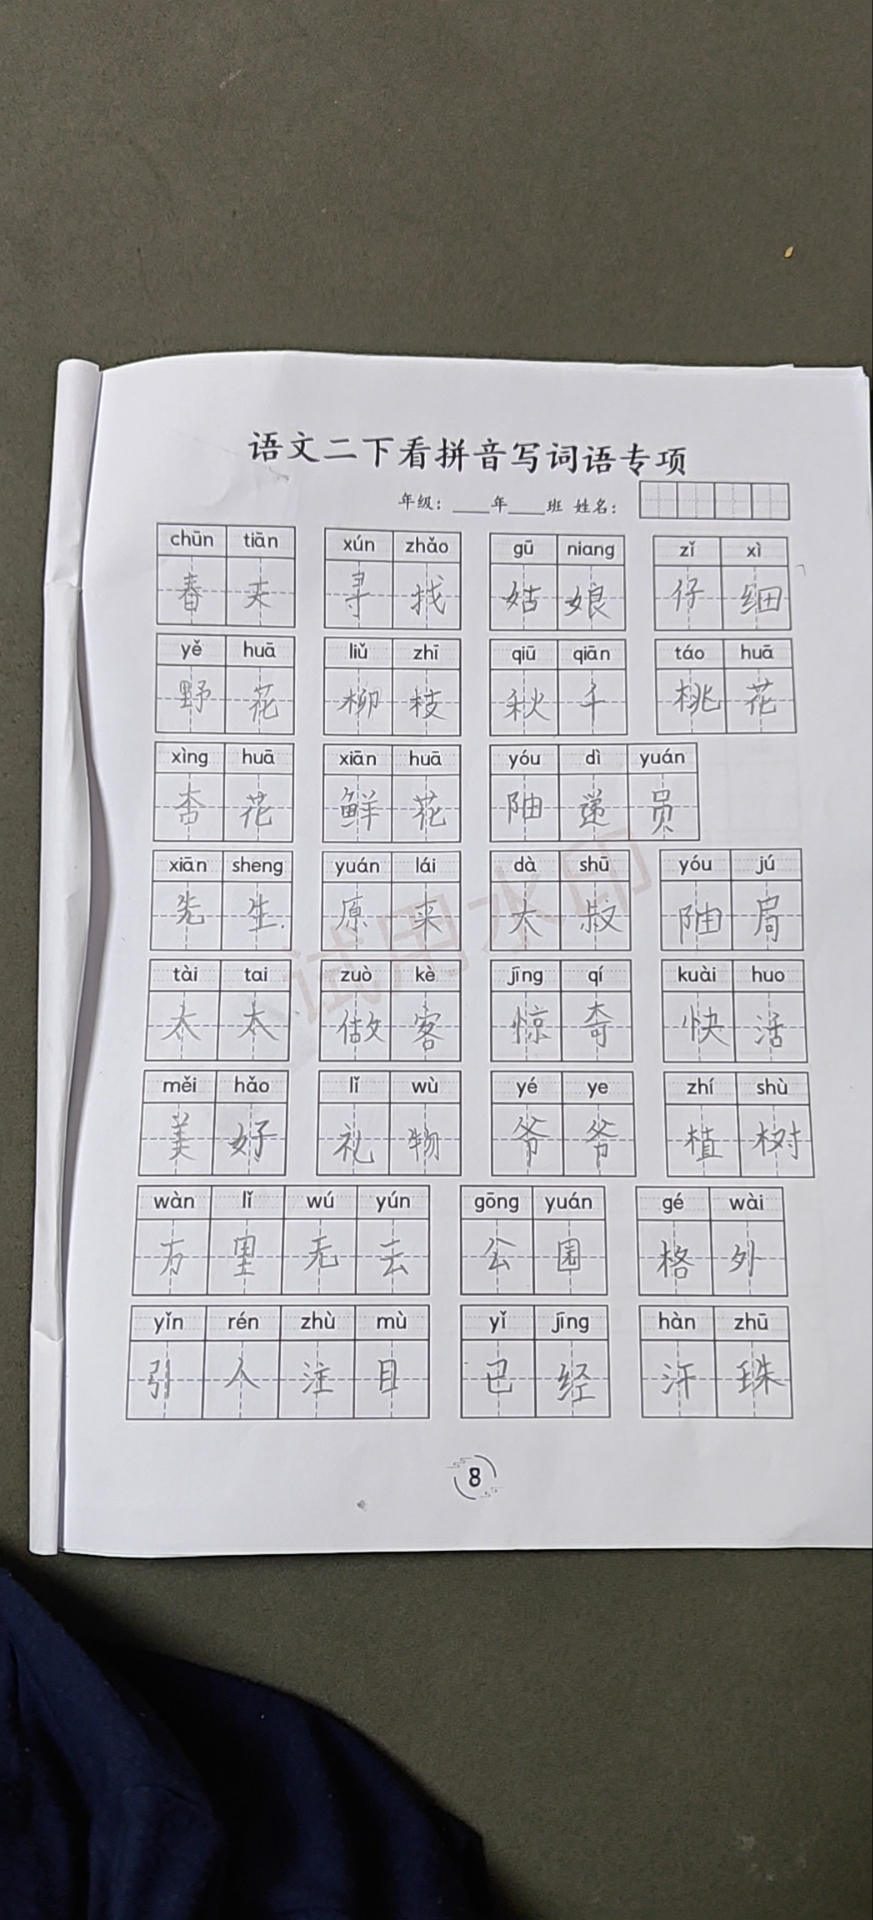 语文二下看拼音写词语专项
年级：____年____班 姓名：
chūn tiān xún zhǎo gū niang zǐ xì
春 天 寻 找 姑 娘 仔 细
yě huā liǔ zhī qiū qiān táo huā
野 花 柳 枝 秋 千 桃 花
xìng huā xiān huā yóu dì yuán
杏 花 鲜 花 邮 递 员
xiān sheng yuán lái dà shū yóu jú
先 生 原 来 大 叔 邮 局
tài tai zuò kè jīng qí kuài huo
太 太 做 客 惊 奇 快 活
měi hǎo lǐ wù yé ye zhí shù
美 好 礼 物 爷 爷 植 树
wàn lǐ wú yún gōng yuán gé wài
万 里 无 云 公 园 格 外
yǐn rén zhù mù yǐ jīng hàn zhū
引 人 注 目 已 经 汗 珠
8
试用水印